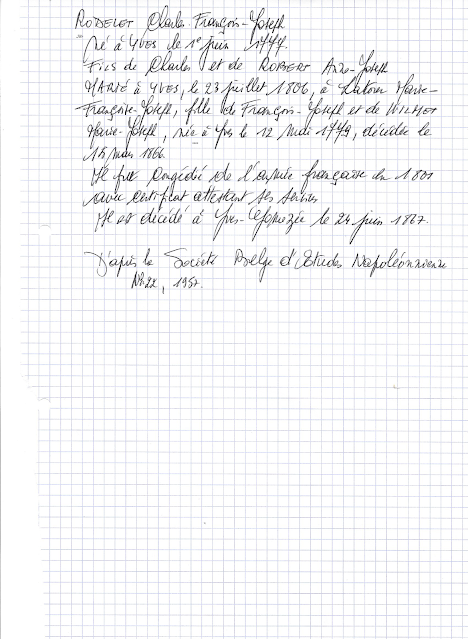 RODELET Charles François-Joseph
Né à YVES le 1er juin 1777.
Fils de Charles et de ROBERT Anne-Joseph
MARIÉ à YVES, le 23 juillet 1806, à Latour Marie-
Françoise-Joseph, fille de François-Joseph et de WILMET
Marie-Joseph, née à Yves le 12 mai 1779, décédée le
15 mars 1866.
Il fut congédié de l'armée française en 1801
avec certificat attestant ses services
Il est décédé à Yves-Gomezée le 24 juin 1867.
D'après la Société Belge d'Etudes Napoléonienne
N° 22, 1957.